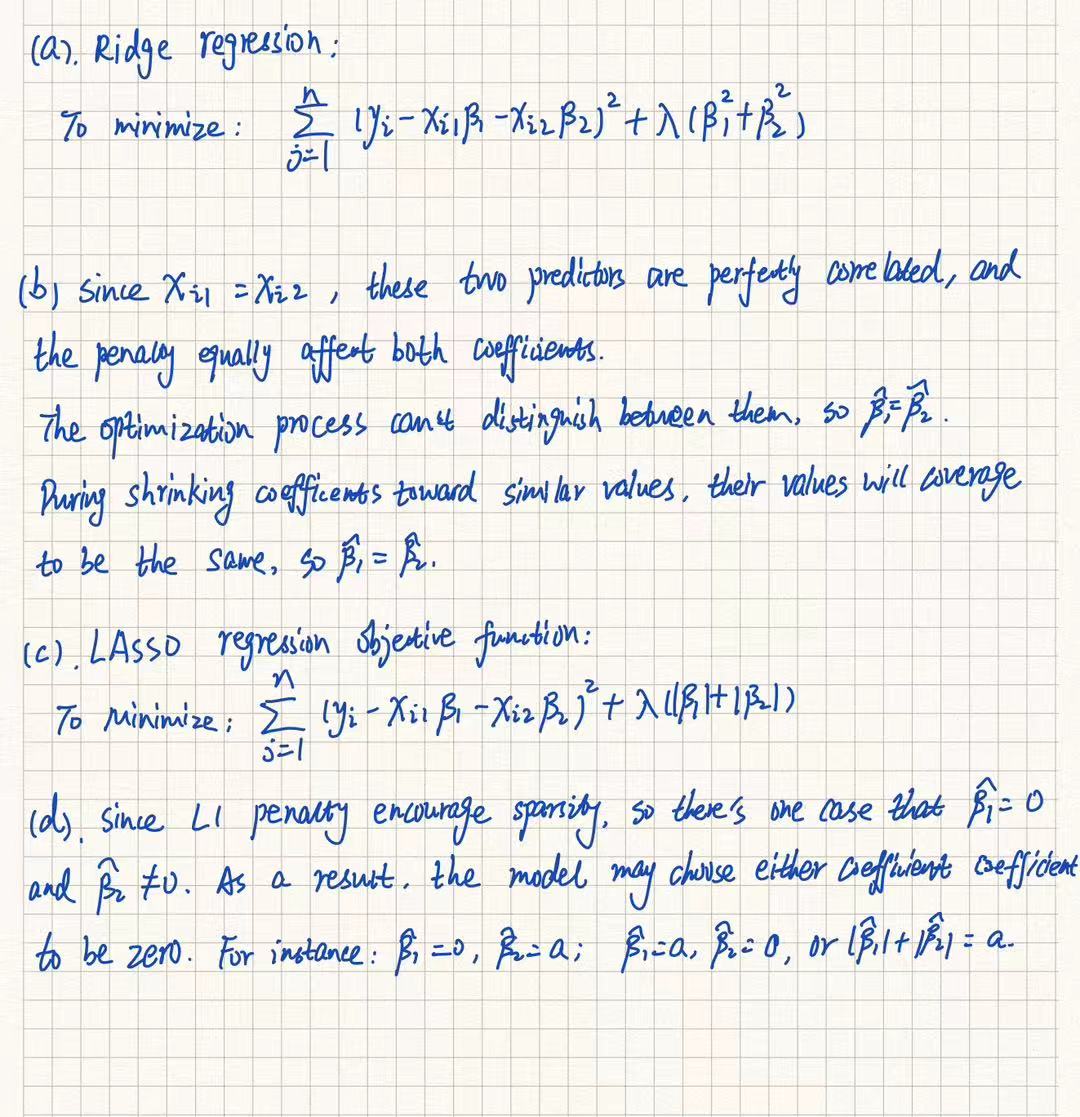 (a). Ridge regression:
To minimize: \sum_{j=1}^{n} (y_i - x_{i1}β_1 - x_{i2}β_2)^2 + λ(β_1^2 + β_2^2)
(b) since x_{i1} = x_{i2}, these two predictors are perfectly correlated, and
the penalty equally affect both coefficients.
The optimization process can't distinguish between them, so \hat{β}_1 = \hat{β}_2.
During shrinking coefficents toward similar values, their values will coverage
to be the same, so \hat{β}_1 = \hat{β}_2.
(c). LASSO regression objective function:
To minimize: \sum_{j=1}^{n} (y_i - x_{i1}β_1 - x_{i2}β_2)^2 + λ(|β_1| + |β_2|)
(d). since L1 penalty encourage sparsity, so there's one case that \hat{β}_1 = 0
and \hat{β}_2 ≠ 0. As a result, the model may choose either coefficient coefficient
to be zero. For instance: \hat{β}_1 = 0, \hat{β}_2 = a; \hat{β}_1 = a, \hat{β}_2 = 0, or |\hat{β}_1| + |\hat{β}_2| = a.